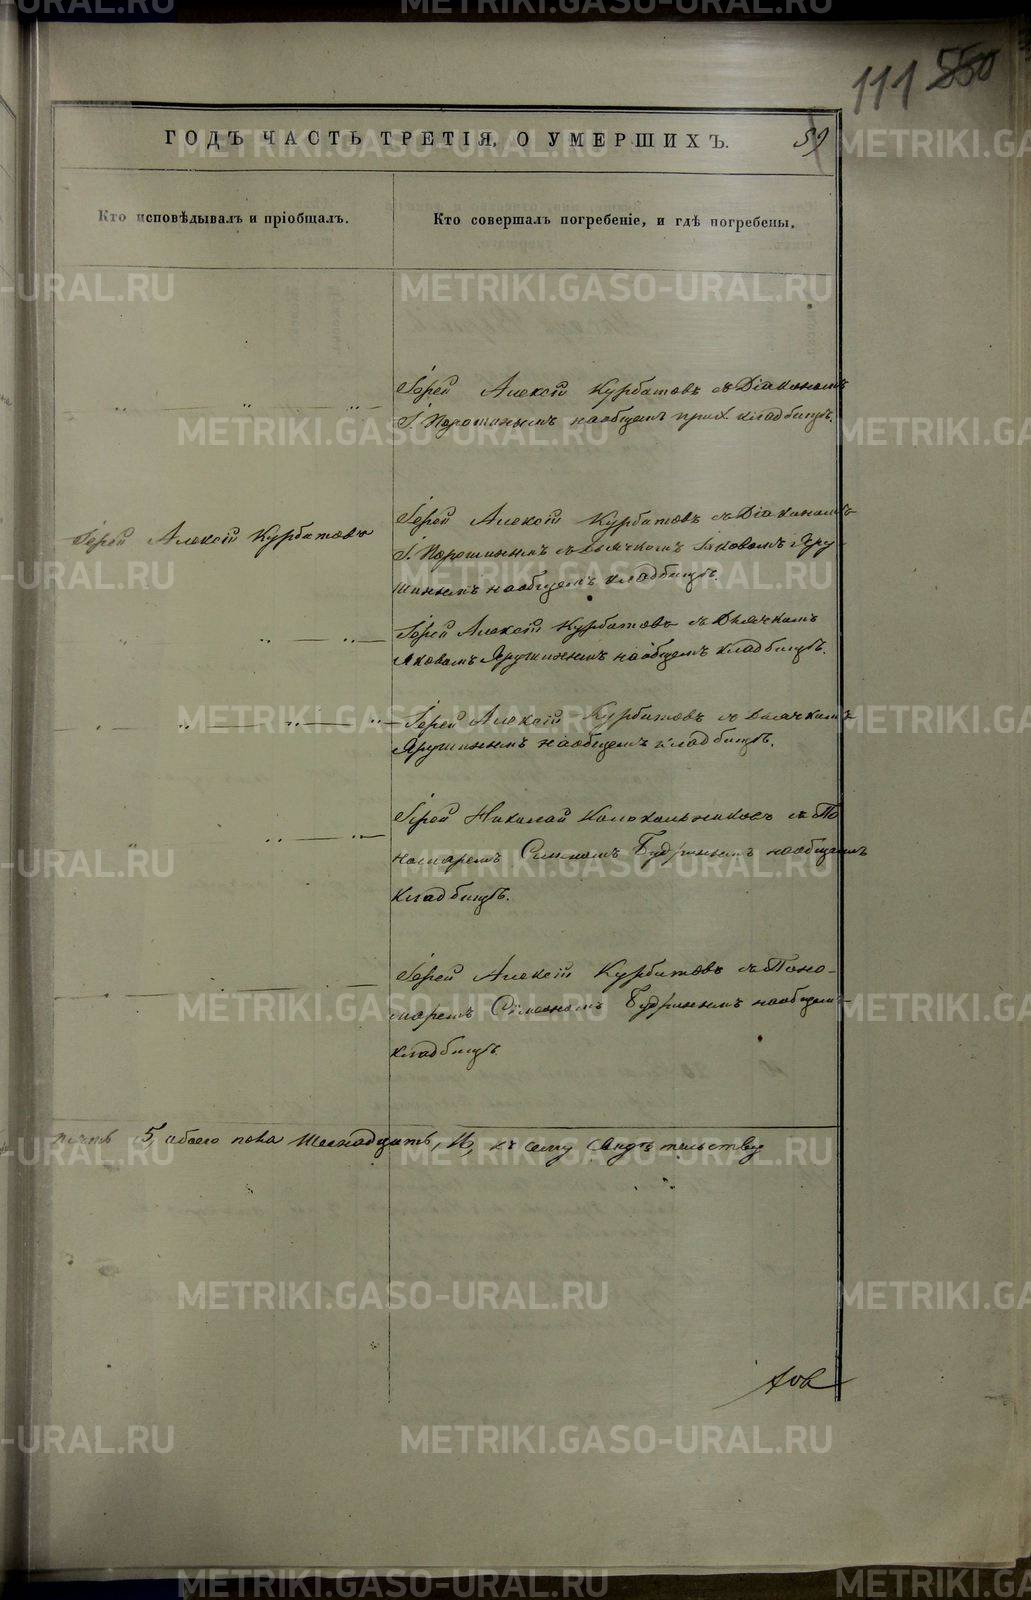 111 550
ГОДЪ ЧАСТЬ ТРЕТІЯ, О УМЕРШИХЪ.
59
Кто исповѣдывалъ и пріобщалъ.
Кто совершалъ погребеніе, и гдѣ погребены.
Іерей Алексій Курбатовъ съ Діакономъ
І. Порошинымъ на общемъ прих. кладбищѣ.
Іерей Алексій Курбатовъ
Іерей Алексій Курбатовъ съ Діакономъ
І. Порошинымъ съ Дьячкомъ Іаковомъ Яру
шинымъ на общемъ кладбищѣ.
Іерей Алексій Курбатовъ съ Дьячкомъ
Яковомъ Ярушинымъ на общемъ кладбищѣ.
Іерей Алексій Курбатовъ съ Дьячкомъ
Ярушинымъ на общемъ кладбищѣ.
Іерей Николай Колокольниковъ съ По
номаремъ Семеномъ Будринымъ на общемъ
кладбищѣ.
Іерей Алексій Курбатовъ съ Поно-
маремъ Семеномъ Будринымъ на общемъ
кладбищѣ
5, обоего пола шестнадцать, къ сему свидѣтельству
товъ
METRIKI.GASO-URAL.RU